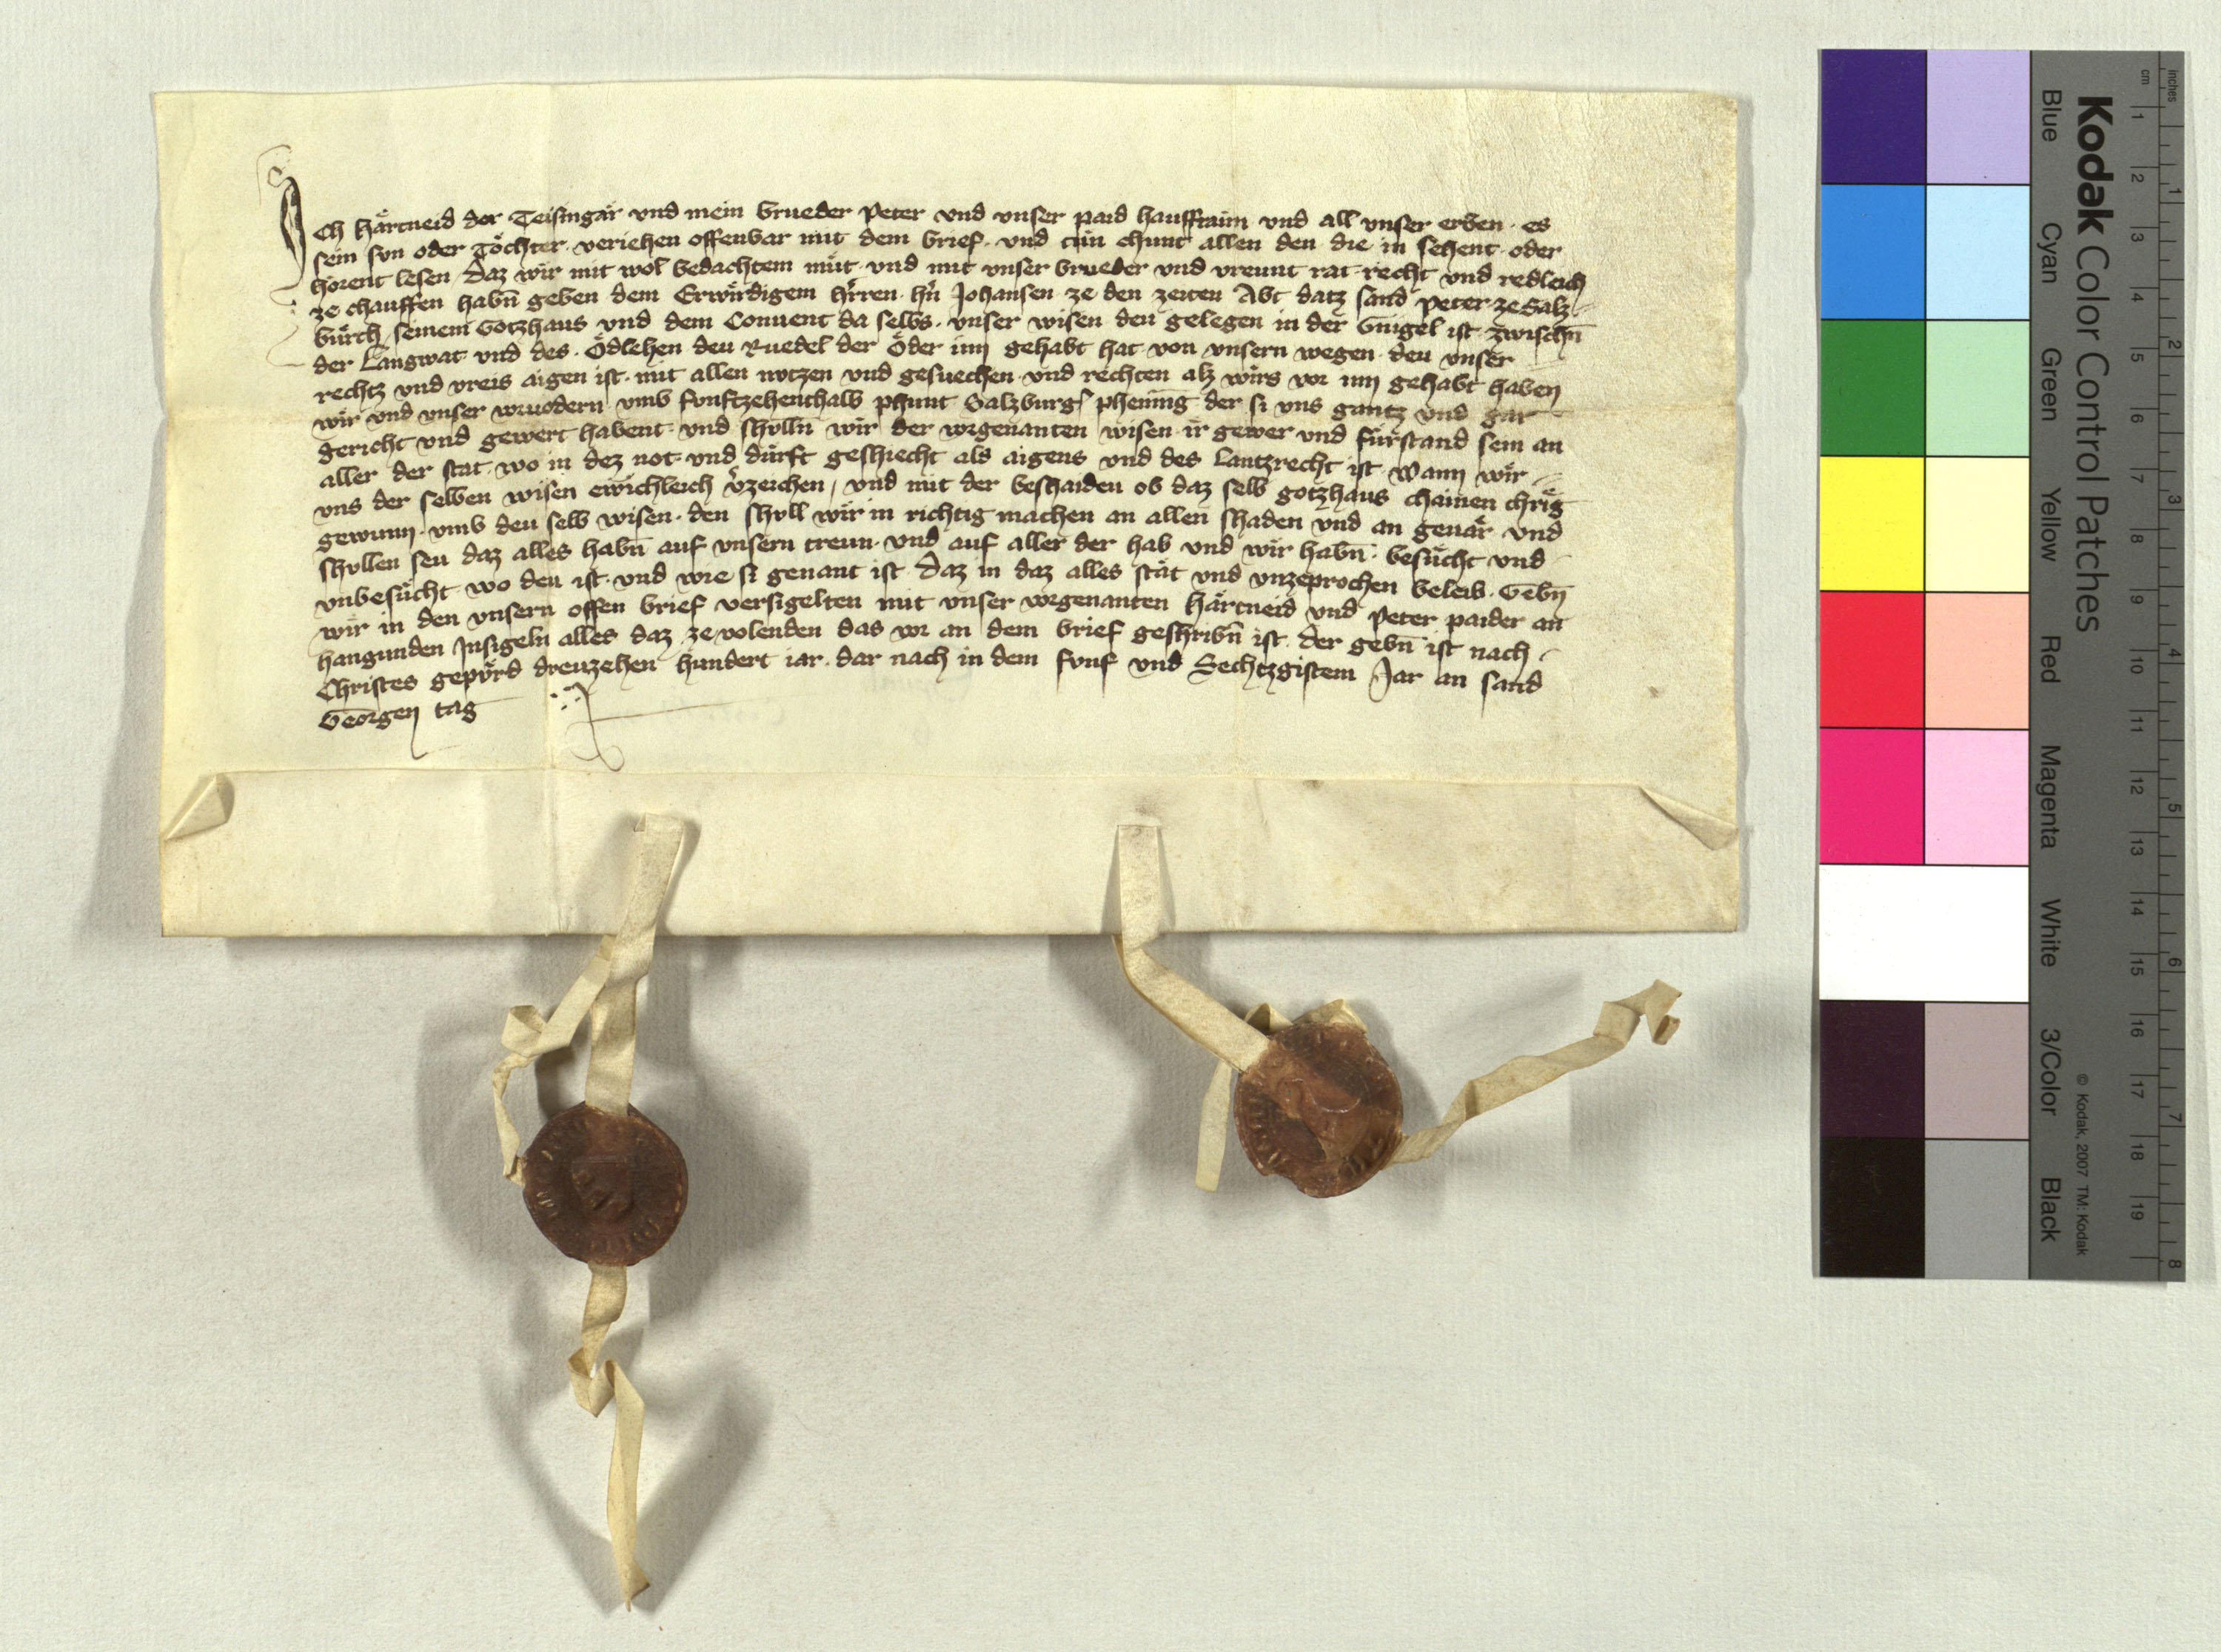 Ich Hærtneid der Teisingær vnd mein brueder Peter vnd vnser paid hausfraun vnd all vnser erben · es
sein sun oder Töchter · veriehen offenbar mit dem brief · vnd tůn chunt allen den die in sehent · oder
hörent lesen · daz wir mit wol bedachtem můt · vnd mit vnser brueder vnd vreunt rat · recht vnd redleich
ze chauffen habn̄ geben dem Erwirdigem h̓ren · hn̓ Johansen · ze den zeiten Abt datz sand Peter ze Salz-
bůrch seinem Gotzhaus vnd dem Conuent da selbs · vnser wisen deu gelegen in der Gnigel ist · zwischn̄
der Langwat vnd des · Ödlehen deu Ruedel der Öder inn gehabt hat von vnsern wegen · deu vnser
rechtz vnd vreis aigen ist · mit allen nutzen vnd gesuechen · vnd rechten alz wirs vor inn gehabt haben
wir vnd vnser vruodern · vmb funftzehenthalb phunt Salzburgʃ phening der si vns gantz vnd gar
gericht vnd gewert habent · vnd shulln̄ wir der vorgenanten wisen ir gewer vnd fürstand sein an
aller der stat · wo in dez not · vnd dürft geshiecht als aigens vnd des Lantzrecht ist Wann wir
vns der selben wisen ewichleich v̓zeichen / vnd mit der beshaiden ob daz selb gotzhaus chainen chrig
gewunn · vmb deu selb wisen · den shull wir in richtig machen an allen shaden vnd an geuær · vnd
shullen seu daz alles habn̄ auf vnsern treun · vnd auf aller der hab vnd wir habn̄ · besůcht vnd
vnbesůcht wo deu ist · vnd wie si genant ist · Daz in daz alles stæt vnd vnzeprochen beleib · Gebn̄
wir in den vnsern offen brief versigelten mit vnser vorgenanten Hærtneid vnd Peter paider an
hangunden Insigeln alles daz ze volenden das vor an dem brief geshribn̄ ist · der gebn̄ ist nach
Christes gepürd dreuzehen hundert iar · dar nach in dem funf vnd Sechtzgistem Jar an sand
Georgen tag
Kodak Color Control Patches
Blue Cyan Green Yellow Red Magenta White 3/Color Black
© Kodak, 2007 TM: Kodak
inches 1 2 3 4 5 6 7 8
cm 1 2 3 4 5 6 7 8 9 10 11 12 13 14 15 16 17 18 19